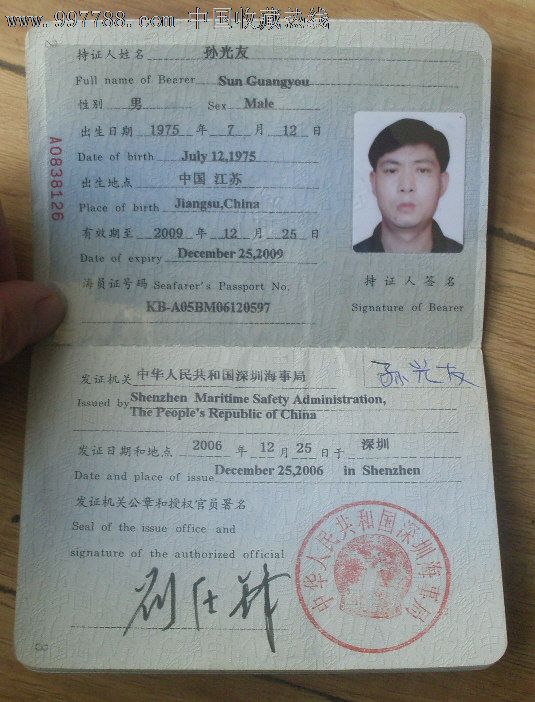 www.997788.com 中国收藏热线
持证人姓名 孙光友
Full name of Bearer Sun Guangyou
性别 男 Sex Male
出生日期 1975 年 7 月 12 日
Date of birth July 12,1975
出生地点 中国 江苏
Place of birth Jiangsu,China
有效期至 2009 年 12 月 25 日
Date of expiry December 25,2009
海员证号码 Seafarer's Passport No.
KB-A05BM06120597
持证人签名
Signature of Bearer
A0838126
孙光友
发证机关 中华人民共和国深圳海事局
Issued by Shenzhen Maritime Safety Administration,
The People's Republic of China
发证日期和地点 2006 年 12 月 25 日于 深圳
Date and place of issue December 25,2006 in Shenzhen
发证机关公章和授权官员署名
Seal of the issue office and
signature of the authorized official
中华人民共和国深圳海事局
3